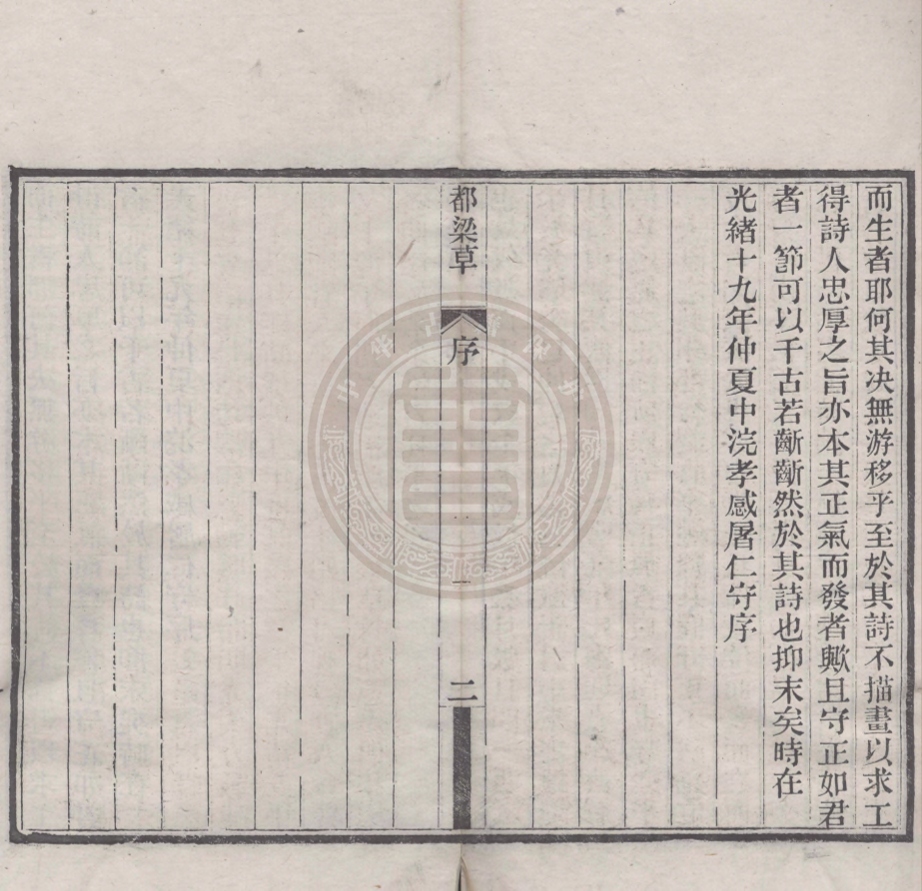 而生者耶何其决無游移乎至於其詩不描畫以求工
得詩人忠厚之旨亦本其正氣而發者歟且守正如君
者一節可以千古若齗齗然於其詩也抑末矣時在
光緒十九年仲夏中浣孝感屠仁守序
都梁草
序
二